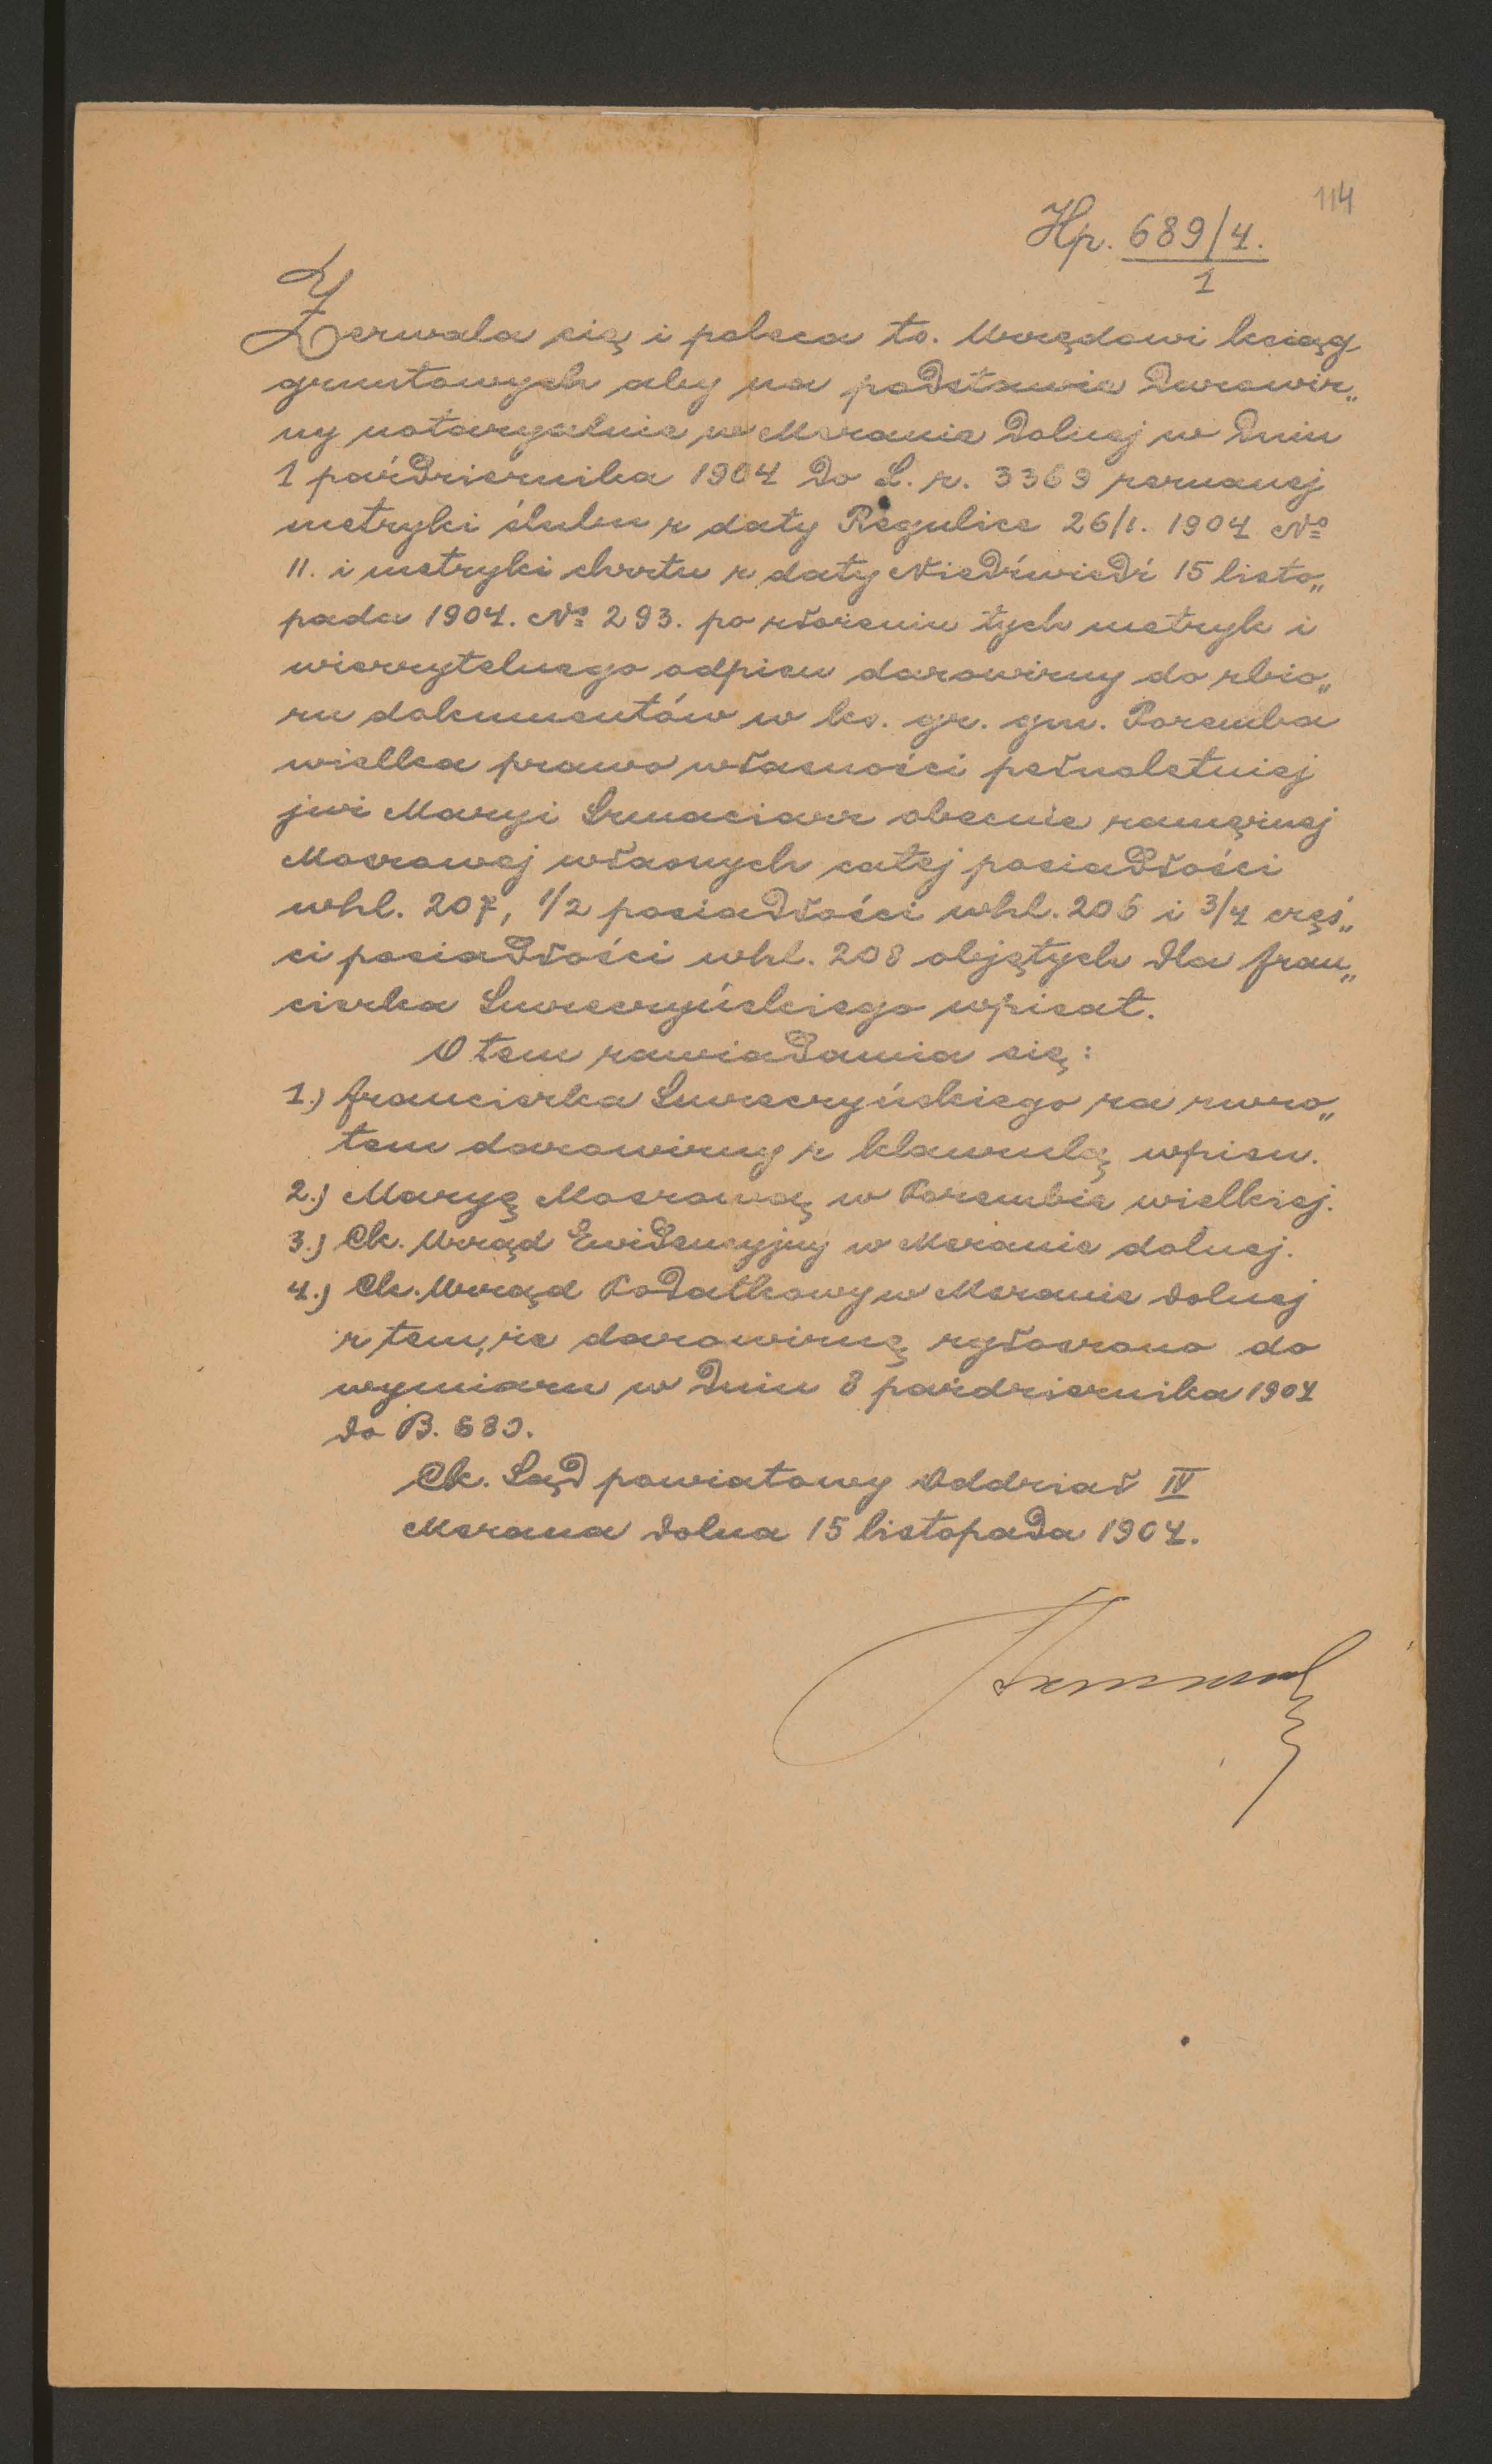 114
Hp. 689/4.
1
Zezwala się i poleca to. Urzędowi ksiąg
gruntowych aby na podstawie Darowiz„
ny notaryalnie w Mszanie Dolnej w Dniu
1 paździerznika 1904 Do L. r. 3369 zeznanej
metryki ślubu z daty Regulice 26/1. 1904 №
11. i metryki chrztu z daty Niedźwiedź 15 listo„
pada 1904. № 293. po złożeniu tych metryk i
wierzytelnego odpisu darowizny do zbio„
ru dokumentów w ks. gr. gm. Poremba
wielka prawo własności pełnoletniej
już Maryi Szmaciarz obecnie zamężnej
własnych całej posiadłości
whl. 207, 1/2 posiadłości whl. 206 i 3/4 częś„
ci posiadłości whl. 208 objętych dla Fran„
ciszka wpisał.
O tem zawiadamia się:
1.) Franciszka za zwro„
tem darowizny z klawzulą wpisu.
2.) Maryę w Porembie wielkiej.
3.) Ck. Urząd Ewidencyjny w Mszanie dolnej.
4.) Ck. Urząd Podatkowy w Mszanie Dolnej
z tem, że darowiznę zgłoszono do
wymiaru w Dniu 8 października 1904
Do B. 680.
Ck. Sąd powiatowy Oddział IV
Mszana Dolna 15 listopada 1904.